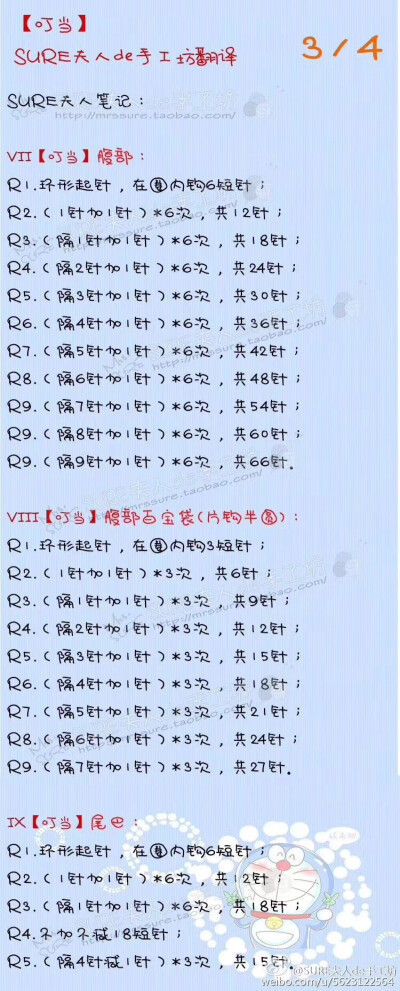 【叮当】
3/4
SURE夫人de手工坊翻译
SURE夫人笔记：
http://mrssure.taobao.com/
VII【叮当】腹部：
R1.环形起针，在圈内钩6短针；
R2.（1针加1针）*6次，共12针；
R3.（隔1针加1针）*6次，共18针；
R4.（隔2针加1针）*6次，共24针；
R5.（隔3针加1针）*6次，共30针；
R6.（隔4针加1针）*6次，共36针；
R7.（隔5针加1针）*6次，共42针；
http://mrssure.taobao.com/
R8.（隔6针加1针）*6次，共48针；
R9.（隔7针加1针）*6次，共54针；
R9.（隔8针加1针）*6次，共60针；
R9.（隔9针加1针）*6次，共66针.
http://mrssure.taobao.com/
VIII【叮当】腹部百宝袋(片钩半圆)：
R1.环形起针，在圈内钩3短针；
R2.（1针加1针）*3次，共6针；
R3.（隔1针加1针）*3次， 共9针；
R4.（隔2针加1针）*3次，共12针；
R5.（隔3针加1针）*3次，共15针；
R6.（隔4针加1针）*3次，共18针；
R7.（隔5针加1针）*3次，共21针；
R8.（隔6针加1针）*3次，共24针；
R9.（隔7针加1针）*3次，共27针.
IX【叮当】尾巴：
R1.环形起针，在圈内钩6短针；
R2.（1针加1针）*6次，共12针；
R3.（隔1针加1针）*6次，共18针；
R4.不加不减18短针；
R5.（隔4针减1针）*3次，共15针.
@SURE夫人de手工坊
weibo.com/u/5623122564